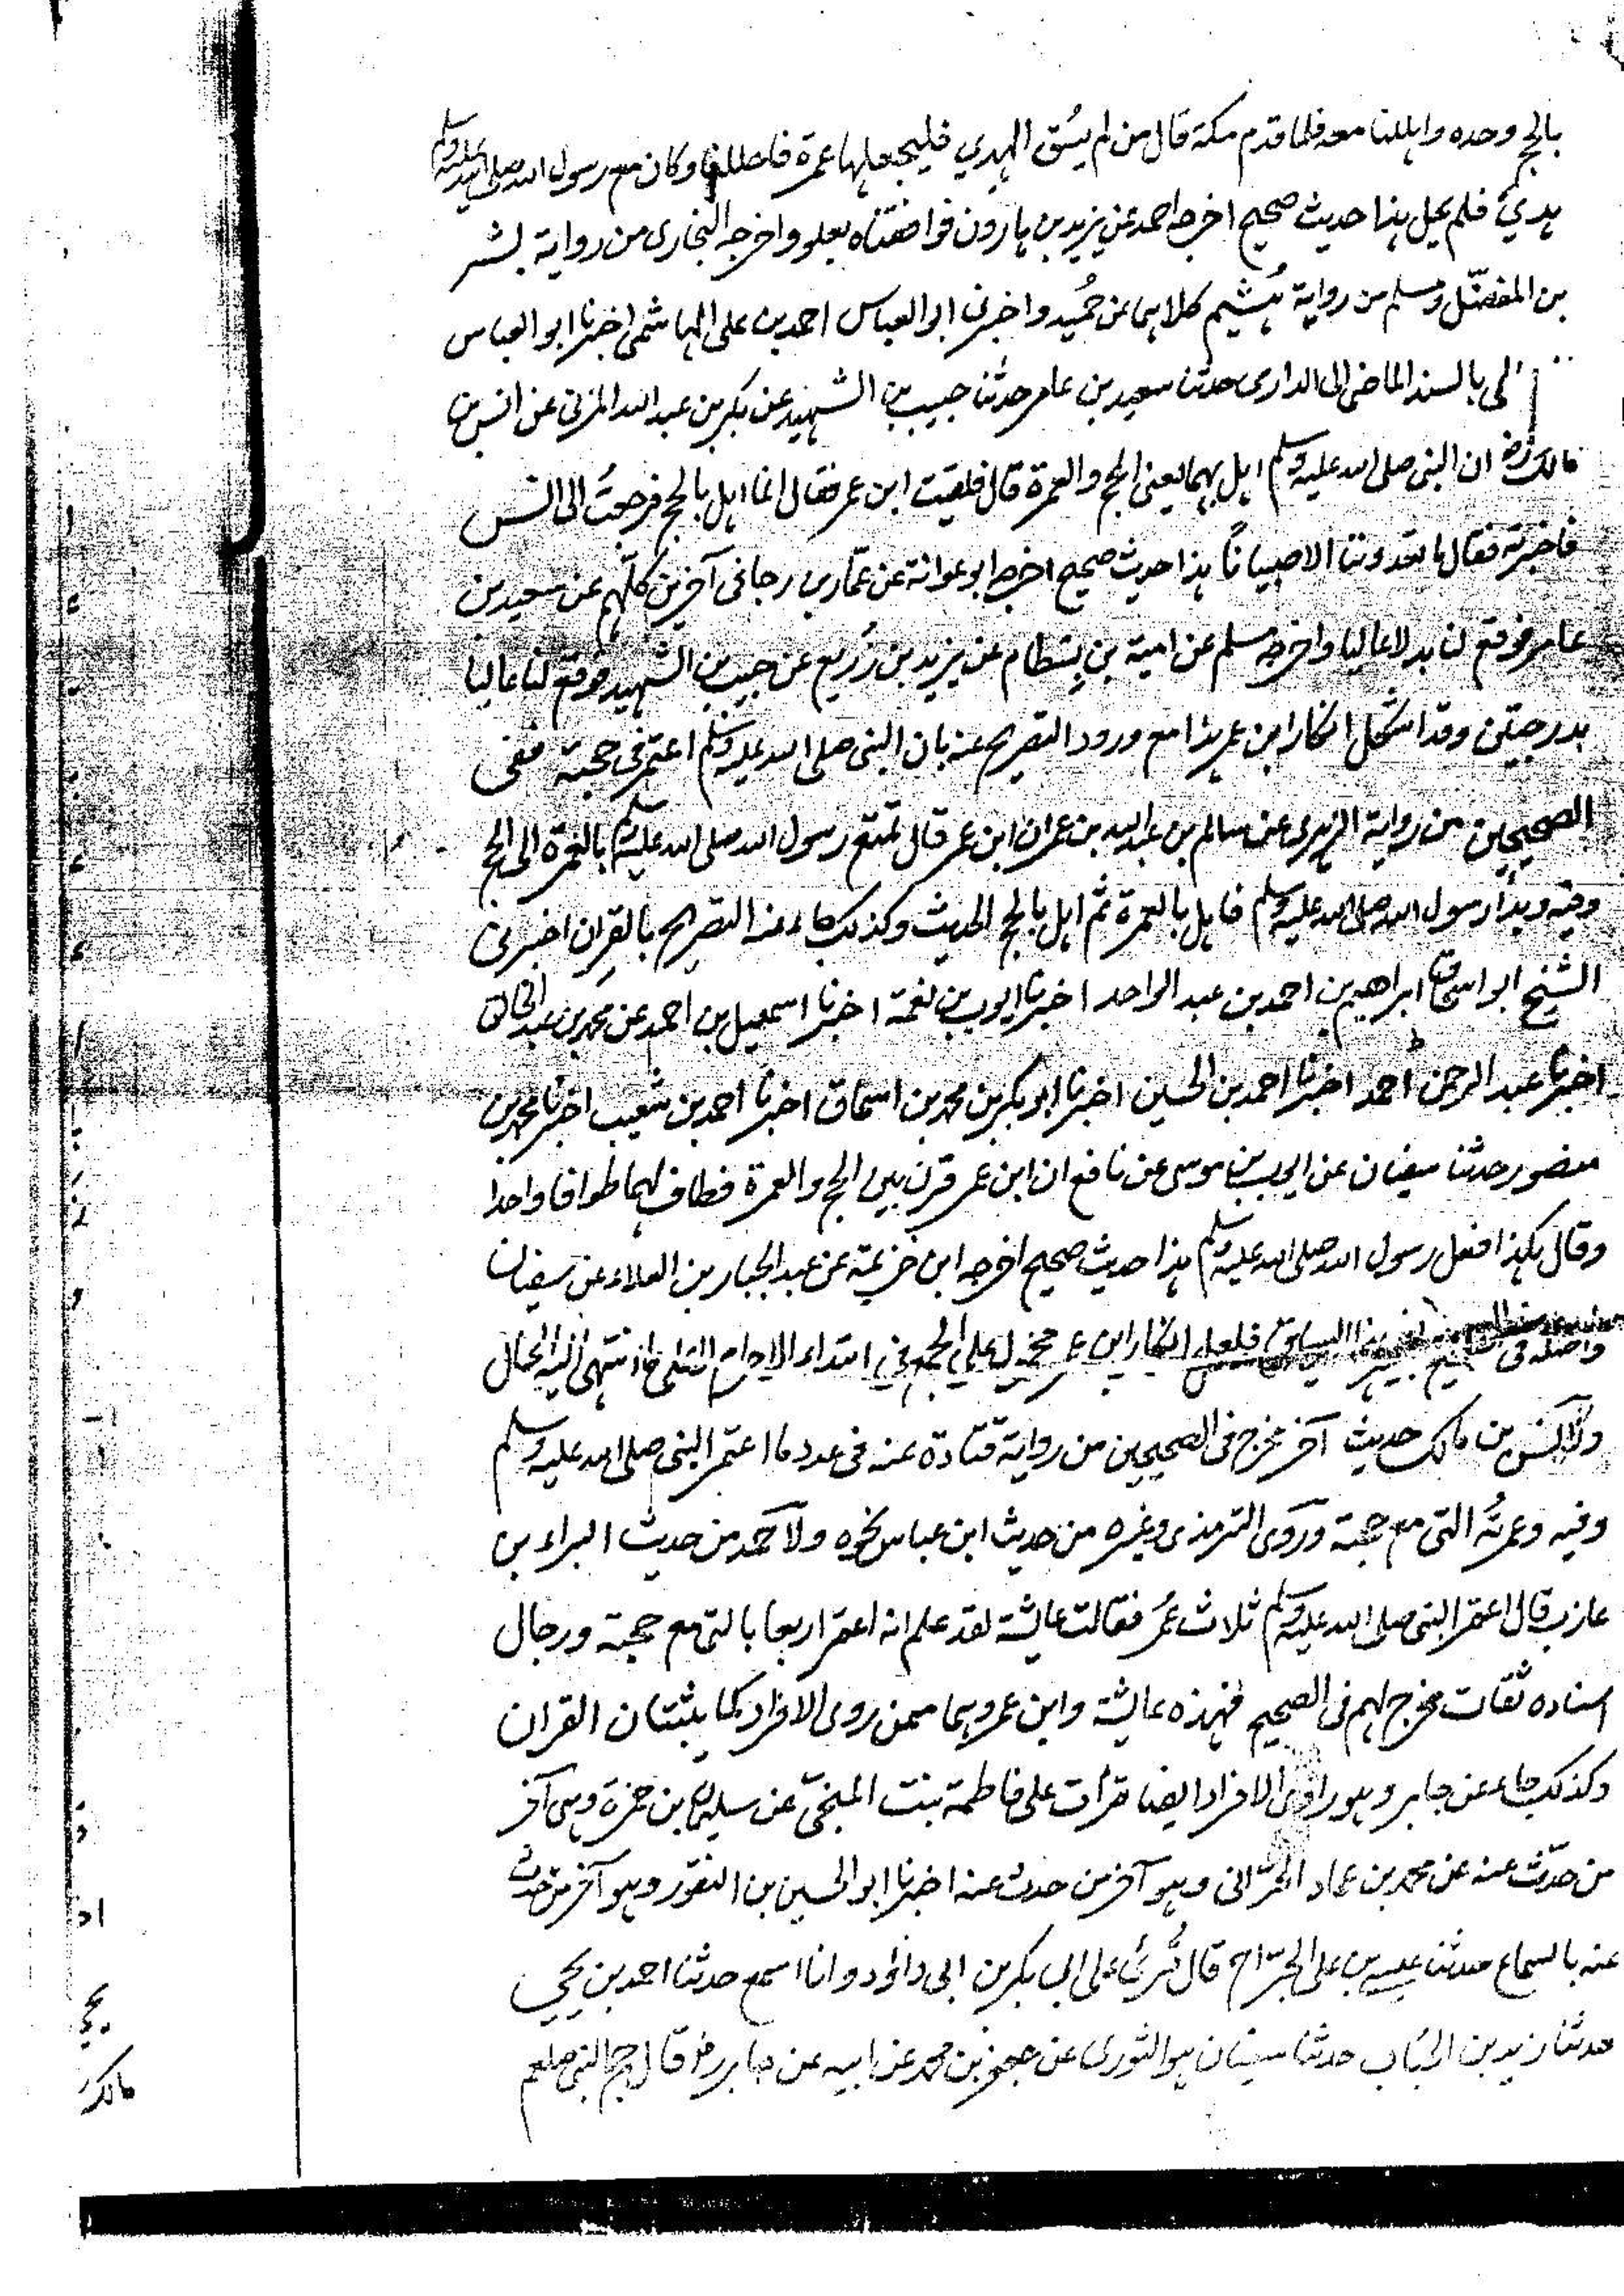 بالحج وحده واهللنا معه فلما قدم مكة قال من لم يسُق الهدي فليجعلها عمرة فاحللنا وكان مع رسول الله صلى الله عليه وسلم
هديٌ فلم يحل هذا حديث صحيح اخرجه احمد عن يزيد بن هارون فوافقناه بعلو واخرجه البخارى من رواية بشر
بن المفضّل ومسلم من رواية هُشيم كلاهما عن حُميد واخبرنى ابو العباس احمد بن على الهاشمى اخبرنا ابو العباس
بالسند الماضى الى الدارمى حدثنا سعيد بن عامر حدثنا حبيب بن الشهيد عن بكر بن عبد الله المزنى عن انس بن
مالك رضـ ان النبى صلى الله عليه وسلم اهل بهما يعنى الحج والعمرة قال فلقيت ابن عمر فقال انما اهل بالحج فرجعتُ الى انس
فاخبرته فقال ما تعدوننا الا صبيانًا هذا حديث صحيح اخرجه ابو عوانة عن عمّار بن رجا فى آخرين كلهم عن سعيد بن
عامر فوقع لنا بدلا عاليا واخرجه مسلم عن امية بن بِسْطام عن يزيد بن زُريع عن حبيب بن الشهيد فوقع لنا عاليا
بدرجتين وقد اشكل انكار ابن عمر هذا مع ورود التصريح عنه بان النبى صلى الله عليه وسلم اعتمر فى حجته ففى
الصحيحين من رواية الزهرى عن سالم بن عبد الله بن عمر ان ابن عمر قال تمتع رسول الله صلى الله عليه وسلم بالعمرة الى الحج
وفيه وبدأ رسول الله صلى الله عليه وسلم فاهل بالعمرة ثم اهل بالحج الحديث وكذلك جاء عنه التصريح بالقِران اخبرنى
الشيخ ابو اسحاق ابراهيم بن احمد بن عبد الواحد اخبرنا ايوب بن نعمة اخبرنا اسمعيل بن احمد عن محمد بن عبد الخالق
اخبرنا عبد الرحمن احمد اخبرنا احمد بن الحسين اخبرنا ابو بكر بن محمد بن اسحاق اخبرنا احمد بن شعيب اخبرنا محمد بن
منصور حدثنا سفيان عن ايوب بن موسى عن نافع ان ابن عمر قرن بين الحج والعمرة فطاف لهما طوافا واحدا
وقال هكذا فعل رسول الله صلى الله عليه وسلم هذا حديث صحيح اخرجه ابن خزيمة عن عبد الجبار بن العلاء عن سفيان
واصله فى بغير هذا السياق فلعل انكار ابن عمر محمول على الجمع فى ابتداء الاحرام انتهى اليه الحال
ولأنس بن مالك حديث آخر مخرج فى الصحيحين من رواية قتادة عنه فى عدد ما اعتمر النبى صلى الله عليه وسلم
وفيه وعمرتُه التى مع حجته وروى الترمذى وغيره من حديث ابن عباس نحوه ولأحمد من حديث البراء بن
عازب قال اعتمر النبى صلى الله عليه وسلم ثلاث عُمَر فقالت عائشة لقد علم انه اعتمر اربعا بالتى مع حجته ورجال
اسناده ثقات مخرج لهم فى الصحيح فهذه عائشة وابن عمر وهما ممن روى الافراد كما يثبتان القران
وكذلك جاء عن جابر وهو راوى الافراد ايضا قرأت على فاطمة بنت المنجّى عن سليمان بن حمزة وهى آخر
من حدّث عنه عن محمد بن عماد الحرّانى وهو آخر من حدث عنه اخبرنا ابو الحسين بن النقور وهو آخر من حدث
عنه بالسماع حدثنا عيسى بن على الجرّاح قال قُرئ على ابى بكر بن ابى داؤد وانا اسمع حدثنا احمد بن يحيى
حدثنا زيد بن الحُباب حدثنا سفيان هو الثورى عن جعفر بن محمد عن ابيه عن جابر رضـ قال حج النبى صلعم